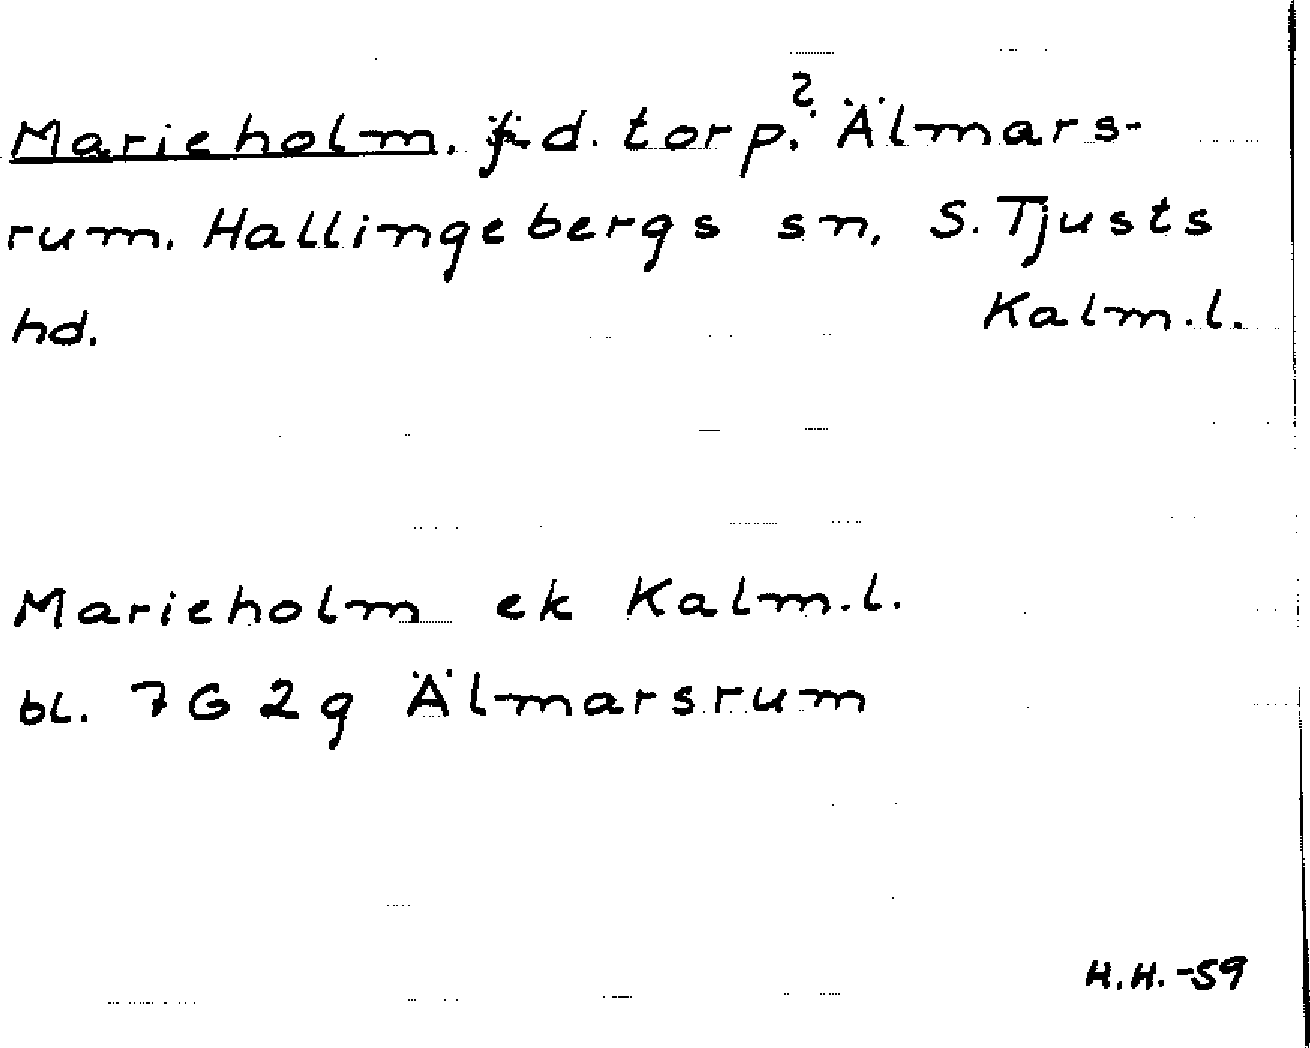 Marieholm. f.d. torp.? Älmars-
rum. Hallingebergs sn, S. Tjusts
hd. Kalm.l.
Marieholm ek Kalm.l.
bl. 7G2g Älmarsrum
H.H.-59